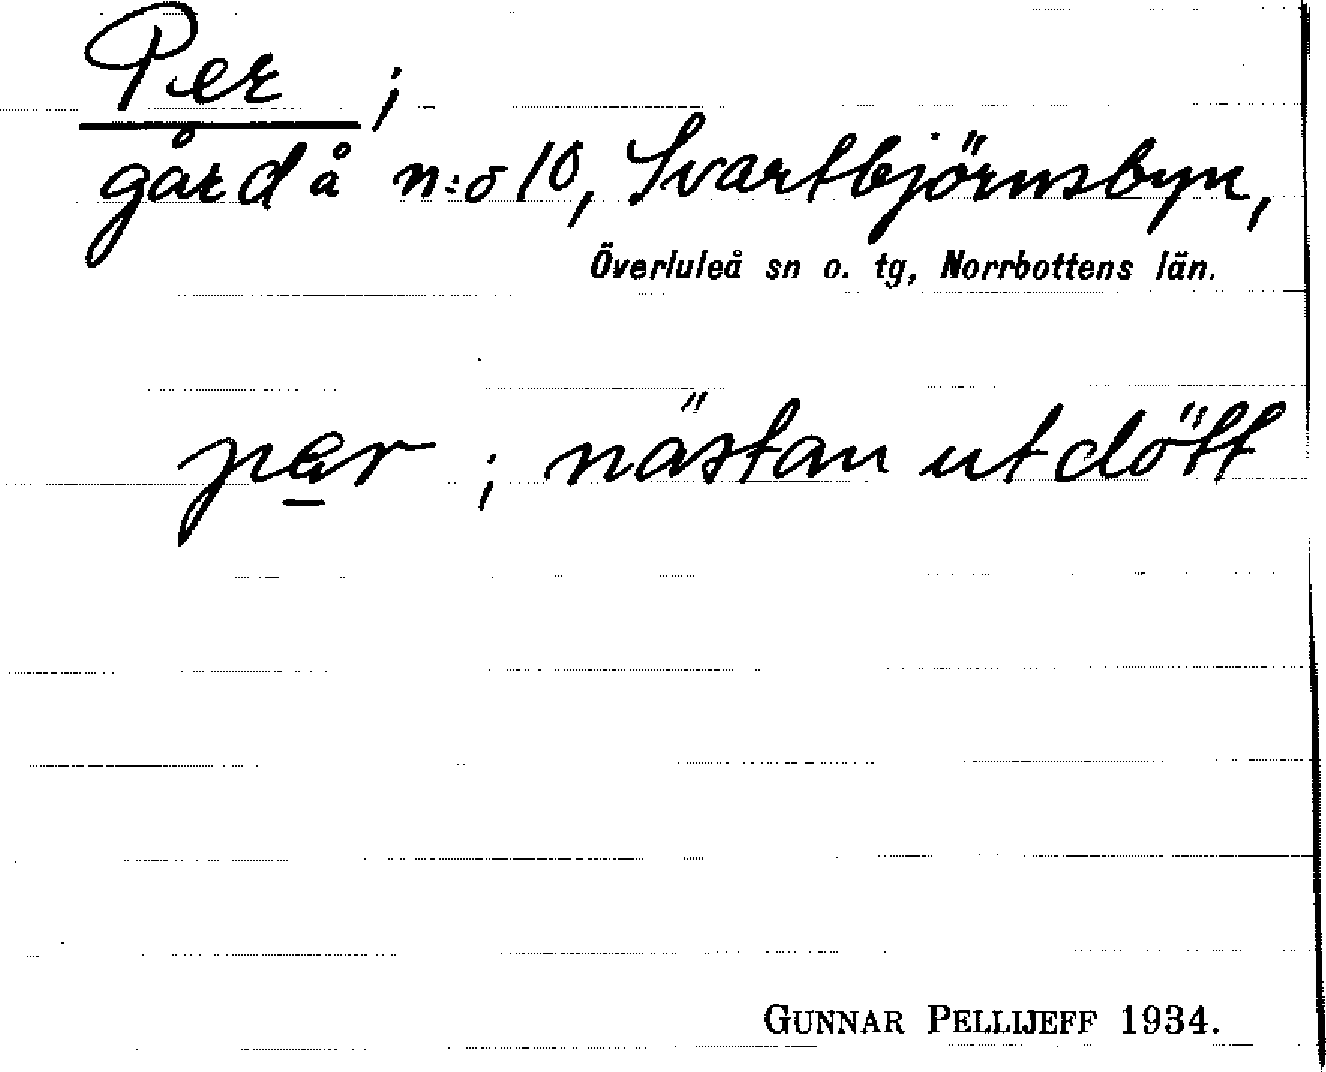 Per ;
gård å n:o 10, Svartbjörnsbyn,
Överluleå sn o. tg, Norrbottens län.
per ; nästan utdött
GUNNAR PELLIJEFF 1934.